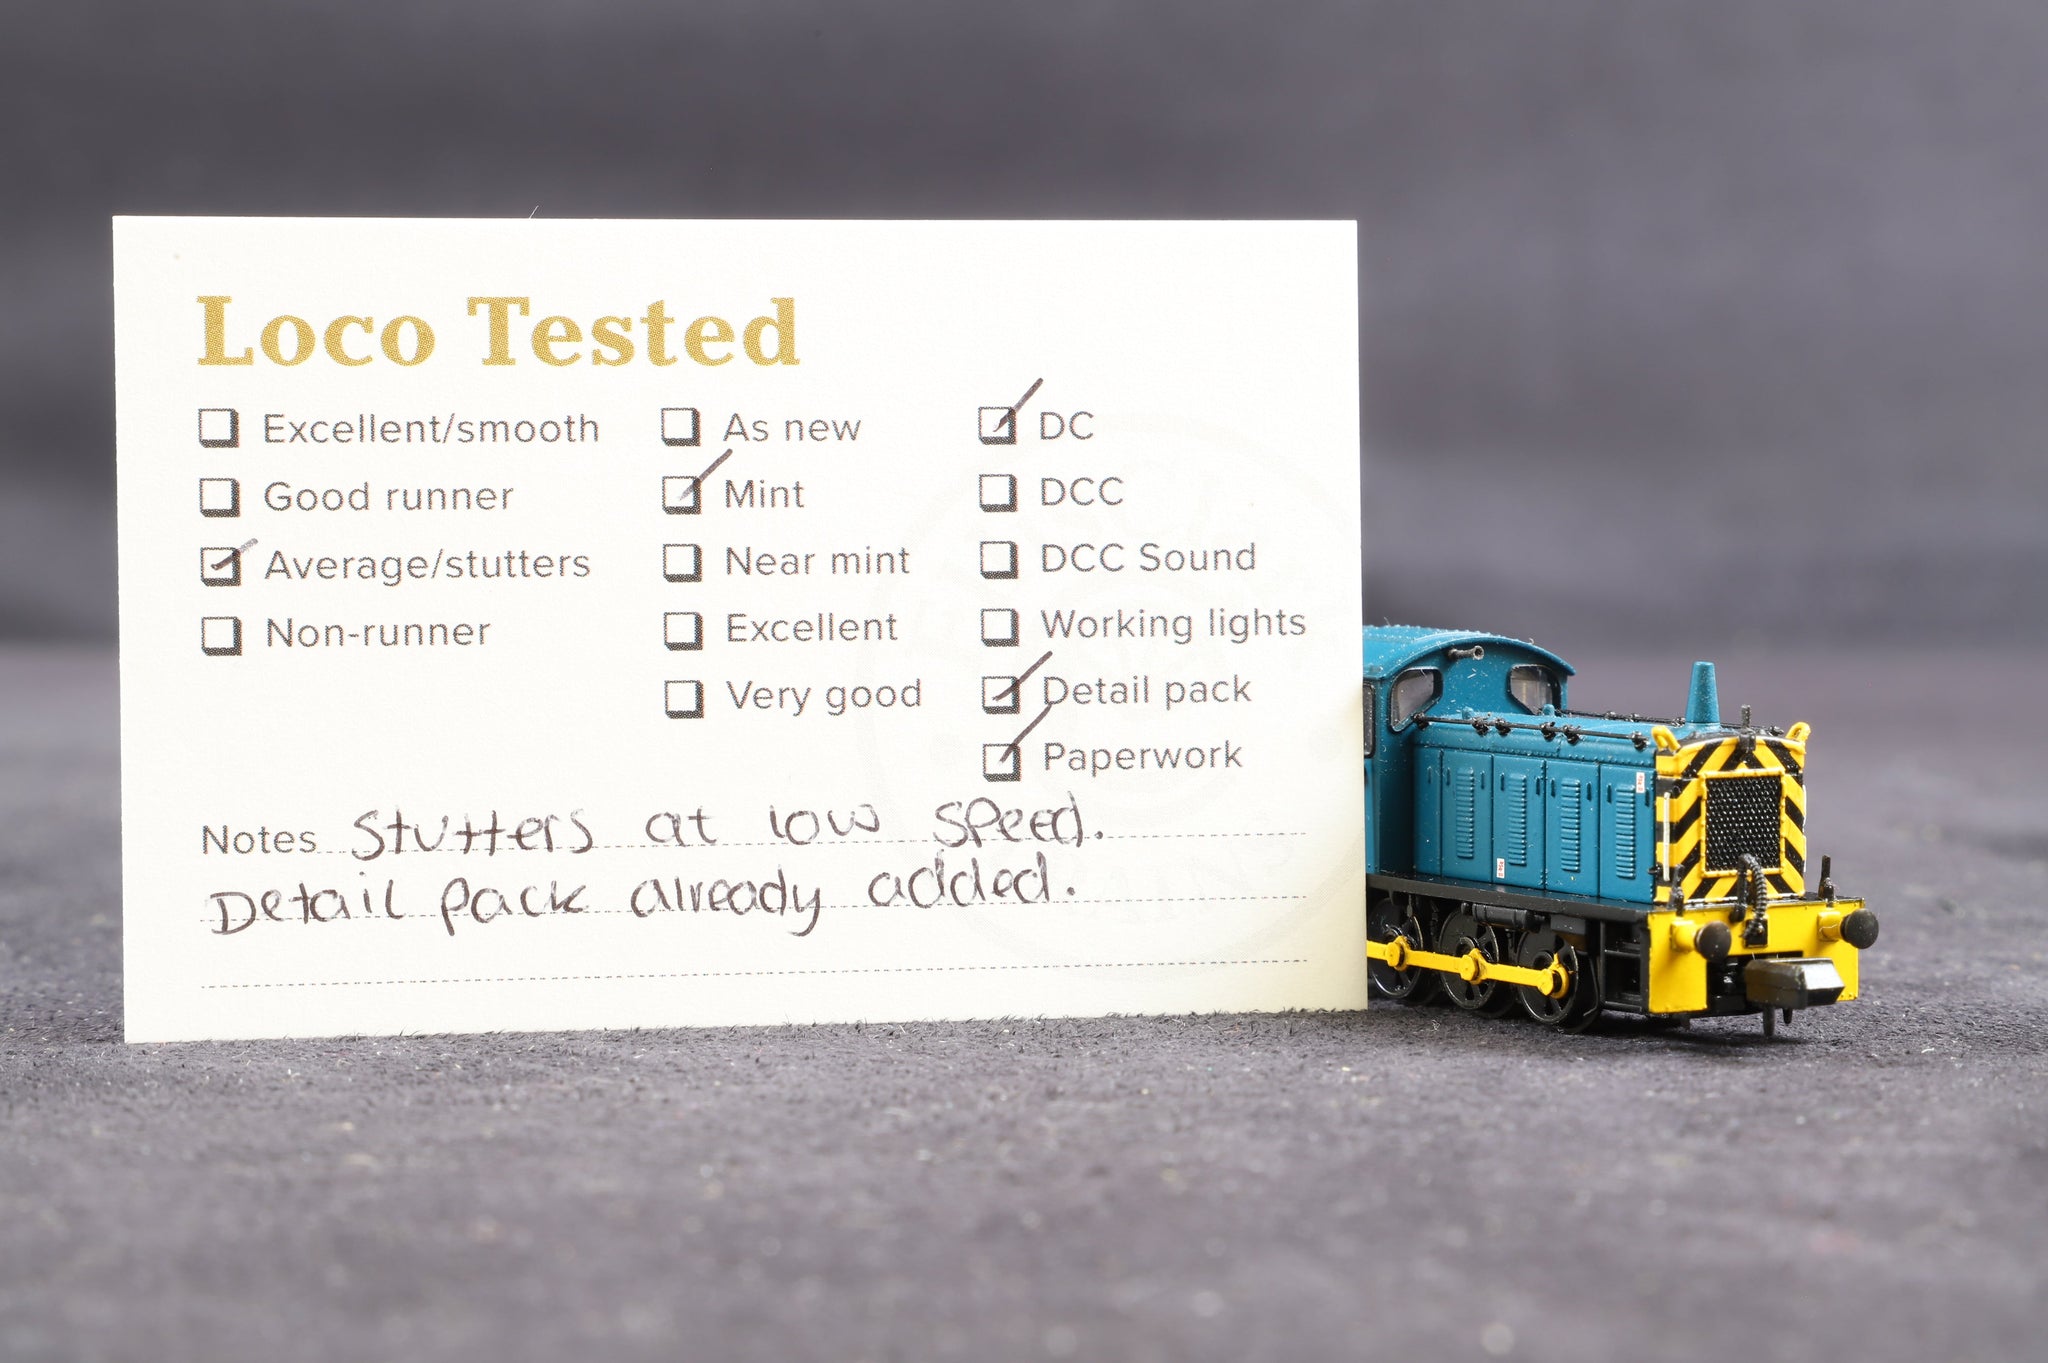 Loco Tested
☐ Excellent/smooth ☐ As new ☑ DC
☐ Good runner ☑ Mint ☐ DCC
☑ Average/stutters ☐ Near mint ☐ DCC Sound
☐ Non-runner ☐ Excellent ☐ Working lights
☐ Very good ☑ Detail pack
☑ Paperwork
Notes Stutters at low speed.
Detail pack already added.